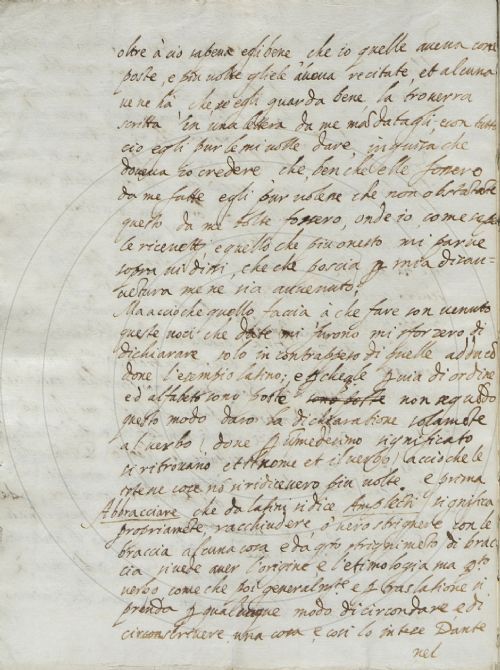 oltre à ciò sabeua egli bene, che io quelle aueua com
poste, e più uolte gliele aueua recitate, et alcuna
ue ne hà, che se egli guarda bene, la trouerrà
scritta in una lettera da me mandatagli; e con tutto
ciò egli pur le mi uolle dare, in guisa che
doueua io credere che, ben che elle fossero
da me fatte egli pur uolesse che non obstante
questo da me tolte fossero, onde io, come sue
le riceuetti, e quello che più onesto mi parue
sopra ui dissi, che che poscia p mia disau-
uentura me ne sia auuenuto.
Ma acciò che quello faccia a che fare son uenuto
queste uoci che date mi furono mi sforzerò di
dichiarare, solo in contrappeso di quelle adducē
done l'esempio latino; e p che p uia di ordine
ed alfabeto sono poste non seguēdo
questo modo darò la dichiaratione solamēte
al uerbo, doue p il medesimo significato
si ritrouino et il nome et il uerbo, acciò che le
cose nō si ridicessero più uolte. e prima
Abbracciare che da latini si dice Amplecti significa
propriamēte, racchiudere, ò uero strignere con le
braccia alcuna cosa e da q.sto strignimēto di brac
cia si uede auer l'origine e l'etimologia ma q.sto
uerbo come che poi generalm.te e p traslatione si
prenda p qualunque modo di circondare, e di
circonscriuere una cosa, e così lo intese Dante
nel